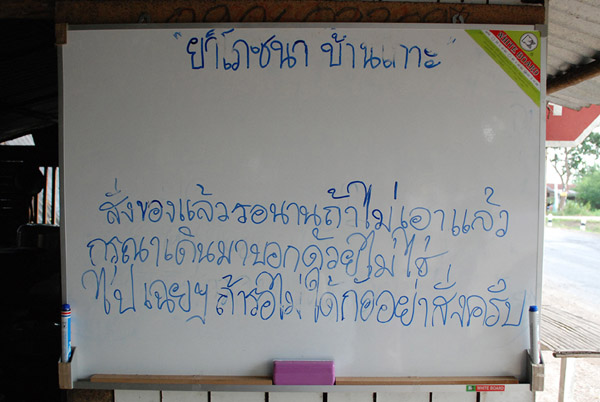 "ยาใโภชนา บ้านเกาะ"
สั่งของแล้วรอนานถ้าไม่เอาแล้ว
กรุณาเดินมาบอกด้วยไม่ใช่
ไปเฉยๆ ถ้ารอไม่ได้ก้ออย่าสั่งครับ
WHITE BOARD